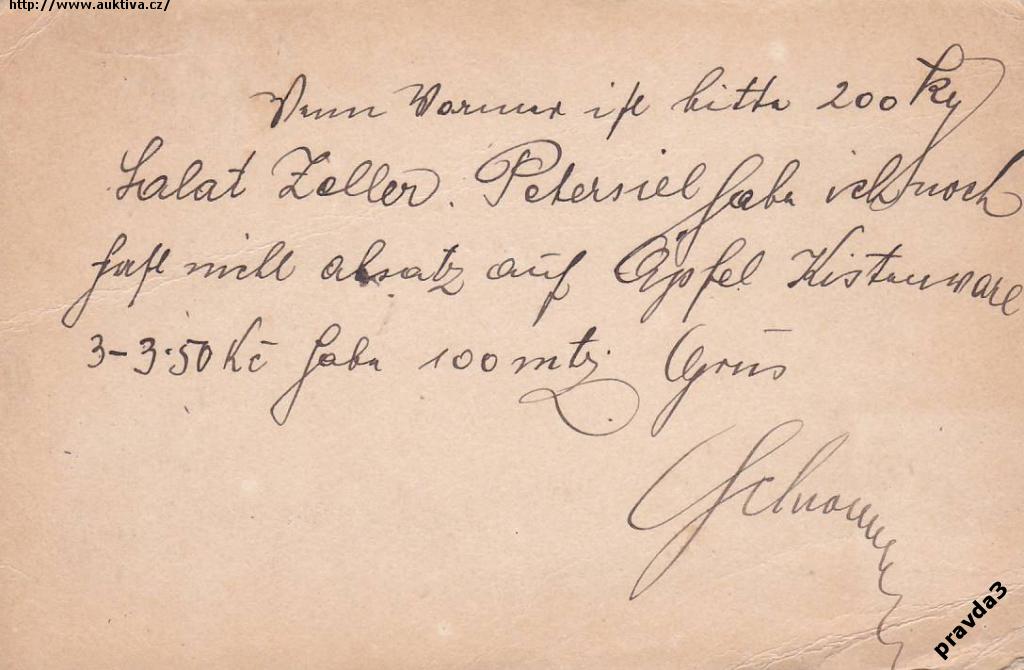 http://www.auktiva.cz/
Wenn Warmer ist bitte 200 Kg
Salat Zeller. Petersiel habe ich noch
hast nicht absatz auf Äpfel Kistenware
3-3·50 Kč habe 100 mtz. Grüs
pravda3